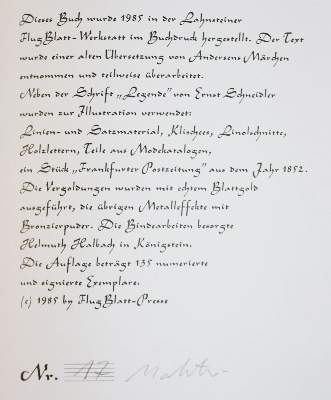 Dieses Buch wurde 1985 in der Lahnsteiner
FlugBlatt-Werkstatt im Buchdruck hergestellt. Der Text
wurde einer alten Übersetzung von Andersens Märchen
entnommen und teilweise überarbeitet.
Neben der Schrift „Legende" von Ernst Schneidler
wurden zur Illustration verwendet:
Linien- und Satzmaterial, Klischees, Linolschnitte,
Holzlettern, Teile aus Modekatalogen,
ein Stück „Frankfurter Postzeitung" aus dem Jahr 1852.
Die Vergoldungen wurden mit echtem Blattgold
ausgeführt, die übrigen Metalleffekte mit
Bronzierpuder. Die Bindearbeiten besorgte
Helmuth Halbach in Königstein.
Die Auflage beträgt 135 numerierte
und signierte Exemplare.
(c) 1985 by FlugBlatt-Presse
Nr. 17